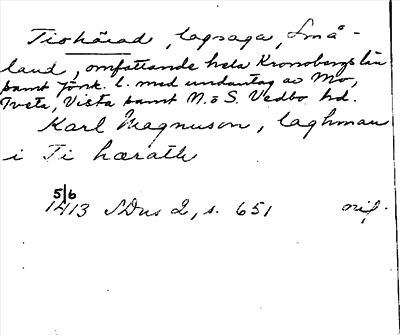 Tiohärad, lagsaga, Små-
land, omfattande hela Kronobergs län
samt Jönk. l. med undantag av Mo,
Tveta, Vista samt N. o S. Vedbo hd.
Karl Magnuson, laghman
i Ti hærath
5/6
1413 SDns 2, s. 651 orig.